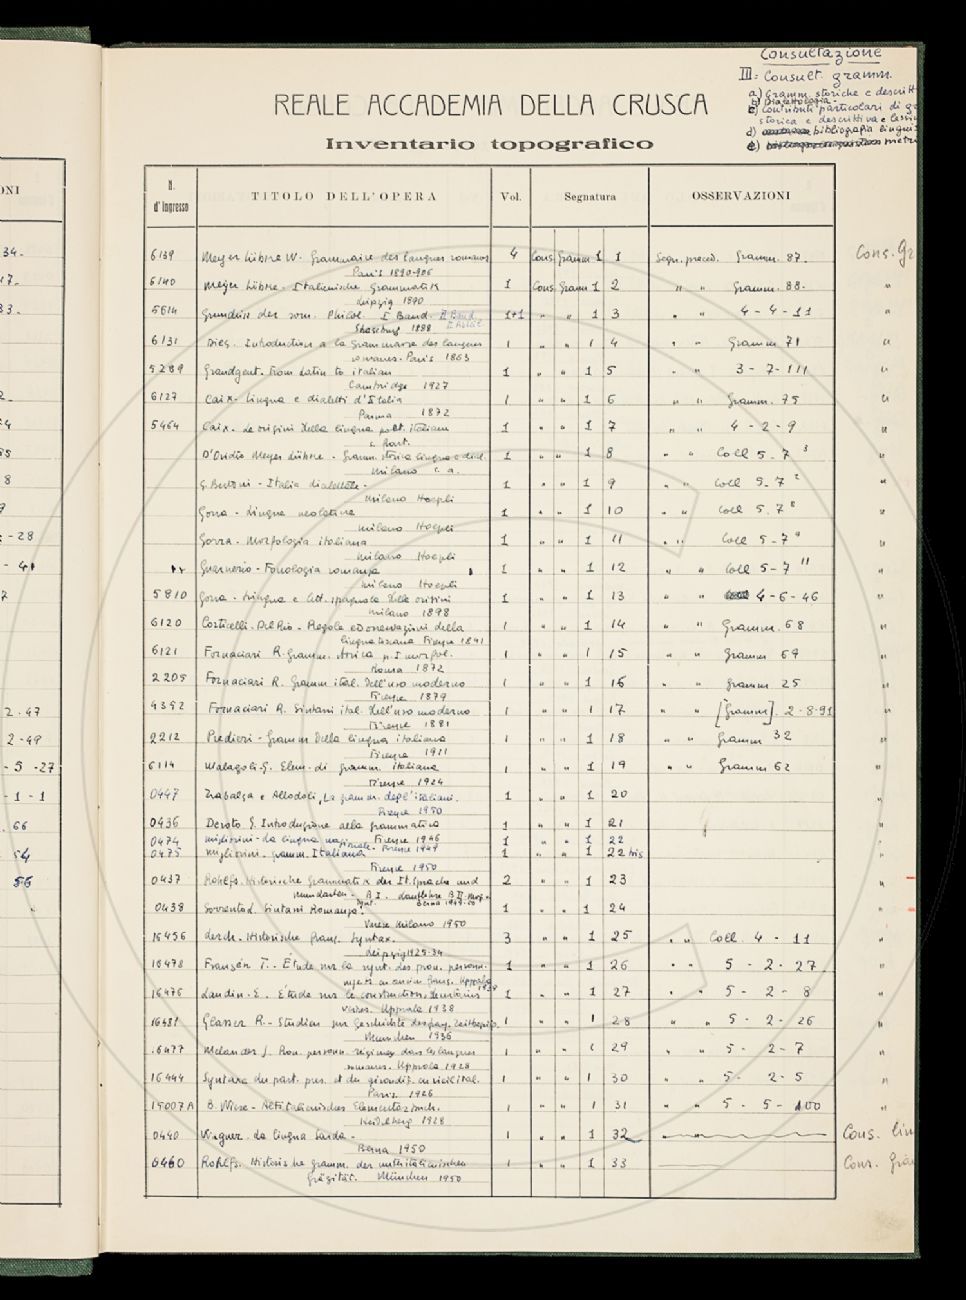 Consultazione
III= Consult. gramm.
a) Gramm. storiche e descritt
b) Dialettologia.
c) Contributi particolari di gr
storica e descrittiva e lessi
d) bibliografia linguis
e) metri
REALE ACCADEMIA DELLA CRUSCA
Inventario topografico
ONI
N. d'Ingresso TITOLO DELL'OPERA Vol. Segnatura OSSERVAZIONI
6139 Meyer Lübke W. Grammaire des langues romanes 4 Cons. Gramm 1 1 Segn. preced. Gramm. 87. Cons. Gr
Paris 1890-906
6140 Meyer Lübke. Italienische Grammatik 1 Cons. Gramm 1 2 " " Gramm. 88. "
Leipzig 1890
5614 Grundriss der rom. Philol. I Band. II Band 1+1 " " 1 3 " " 4-4-11 "
Strassburg 1888
6131 Diez. Introduction a la grammaire des langues 1 " " 1 4 " " Gramm 71 "
romanes. Paris 1863
5289 Grandgent. From Latin to italian 1 " " 1 5 " " 3-7-111 "
Cambridge 1927
6127 Caix. Lingua e dialetti d'Italia 1 " " 1 6 " " Gramm. 75 "
Parma 1872
5464 Caix. Le origini della lingua poet. italiana 1 " " 1 7 " " 4-2-9 "
D'Ovidio Meyer Lübke - Gramm. storica lingua e dial. 1 " " 1 8 " " Coll 5.7 3
Milano s. a.
G. Bertoni - Italia dialettale. 1 " " 1 9 " " Coll 5.7 2 "
Milano Hoepli
Gorra - Lingue neolatine 1 " " 1 10 " " Coll 5.7 8 "
Milano Hoepli
Gorra - Morfologia italiana 1 " " 1 11 " " Coll 5-7 9 "
Milano Hoepli
Guarnerio - Fonologia romanza 1 " " 1 12 " " Coll 5-7 11 "
Milano Hoepli
5810 Gorra - Lingua e lett. spagnola delle origini 1 " " 1 13 " " 4-6-46 "
Milano 1898
6120 Corticelli. Dal Rio - Regole ed osservazioni della 1 " " 1 14 " " Gramm. 68 "
lingua toscana Firenze 1841
6121 Fornaciari R. Gramm. storica p. I morfol. 1 " " 1 15 " " Gramm 69 "
Roma 1872
2205 Fornaciari R. Gramm ital. dell'uso moderno 1 " " 1 16 " " Gramm 25 "
Firenze 1879
4392 Fornaciari R. Sintassi ital. dell'uso moderno 1 " " 1 17 " " [Gramm]. 2-8-91 "
Firenze 1881
2212 Predieri - Gramm della lingua italiana 1 " " 1 18 " " Gramm 32 "
Firenze 1911
6114 Malagoli. G. Elem. di gramm. italiana 1 " " 1 19 " " Gramm 62 "
Firenze 1924
0447 Trabalza e Allodoli, La gramm. degl'italiani. 1 " " 1 20 "
Firenze 1950
0436 Devoto G. Introduzione alla grammatica 1 " " 1 21 "
0474 Migliorini - La lingua nazionale. Firenze 1946 1 " " 1 22 "
0475 Migliorini. gramm. Italiana Firenze 1949 1 " " 1 22 bis "
Firenze 1950
0437 Rohlfs. Historische Grammatik der It. Sprache und 2 " " 1 23 "
Mundarten. B I. Lautlehre B II
Berna 1949-50
0438 Sorrento L. Sintassi Romanza. 1 " " 1 24 "
Varese Milano 1950
16456 Lerch. Historische franz. Syntax. 3 " " 1 25 " " Coll. 4-11 "
Leipzig 1925-34
16478 Franzén T. - Étude sur la synt. des pron. personn. 1 " " 1 26 " " 5-2-27 "
sujets en ancien franç. Uppsala
16476 Sandin. E. Étude sur le 1 " " 1 27 " " 5-2-8 "
Uppsala 1938
16481 Glasser R. - Studien zur Geschichte des franz. Zeitbegriffs. 1 " " 1 28 " " 5-2-26 "
München 1936
16477 Melander J. Pron. personn. régimes dans les langues 1 " " 1 29 " " 5-2-7 "
romanes. Uppsala 1928
16444 Syntaxe du part. pres. et du girondif. en vieil ital. 1 " " 1 30 " " 5-2-5 "
Paris 1926
15007A B. Wiese - Altitalienisches Elementarbuch. 1 " " 1 31 " " 5-5-100 "
Heidelberg 1928
0440 Wagner. La lingua sarda - 1 " " 1 32 Cons. lin
Berna 1950
0460 Rohlfs. Historische gramm. der unteritalienischen 1 " " 1 33 Cons. Gra
Gräzität. München 1950